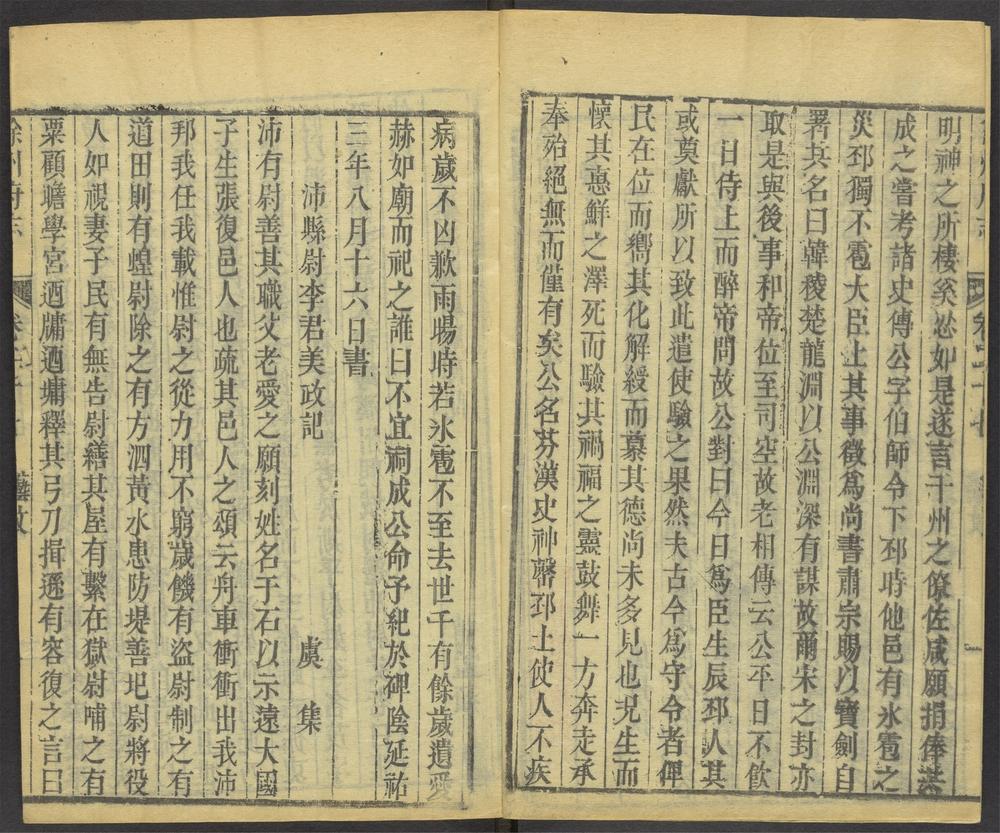 明神之所棲奚忿如是遂言于州之僚佐咸願捐俸
成之嘗考諸史傳公字伯師令下邳時他邑有氷雹之
災邳獨不雹大臣上其事徵爲尚書肅宗賜以寶劍自
署其名曰韓稜楚龍淵以公淵深有謀故爾宋之封亦
取是與後事和帝位至司空故老相傳云公平日不飲
一日侍上而醉帝問故公對曰今日爲臣生辰邳人其
或奠獻所以致此遣使驗之果然夫古今爲守令者俾
民在位而嚮其化解綬而慕其德尚未多見也况生而
懷其惠鮮之澤死而驗其禍福之靈鼓舞一方奔走承
奉殆絕無而僅有矣公名芬漢史神馨邳土使人不疾
病歲不凶歉雨暘時若氷雹不至去世千有餘歲遺愛
赫如廟而祀之誰曰不宜祠成公命予紀於碑陰延祐
三年八月十六日書
沛縣尉李君美政記
虞集
沛有尉善其職父老愛之願刻姓名于石以示遠大國
子生張復邑人也疏其邑人之頌云舟車衝衝出我沛
邦我任我載惟尉之從力用不窮歲饑有盜尉制之有
道田則有蝗尉除之有方泗黃水患防堤善圯尉將役
人如視妻子民有無告尉繕其屋有繫在獄尉哺之有
粟顧瞻學宮迺牗迺墉釋其弓刀揖遜有容復之言曰
徐州府志
藝文